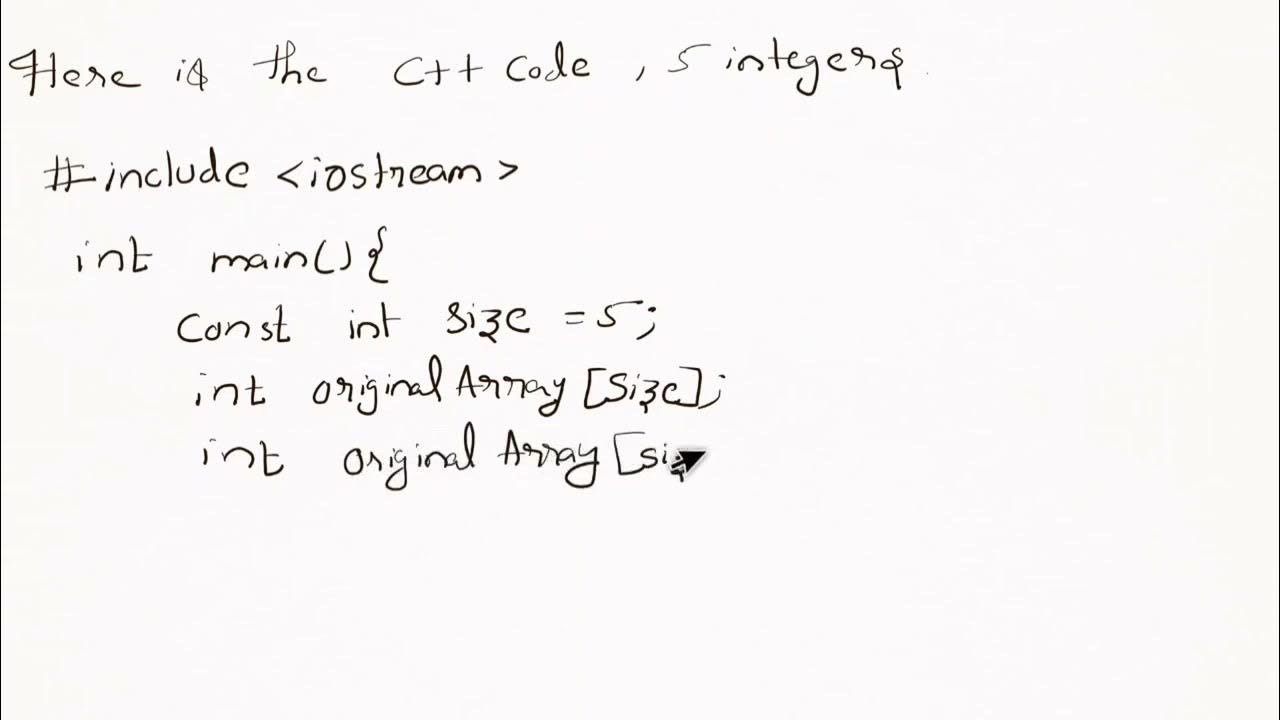 Here is the C++ code , 5 integers
#include <iostream>
int main(){
const int size =5;
int original Array [size];
int original Array [si